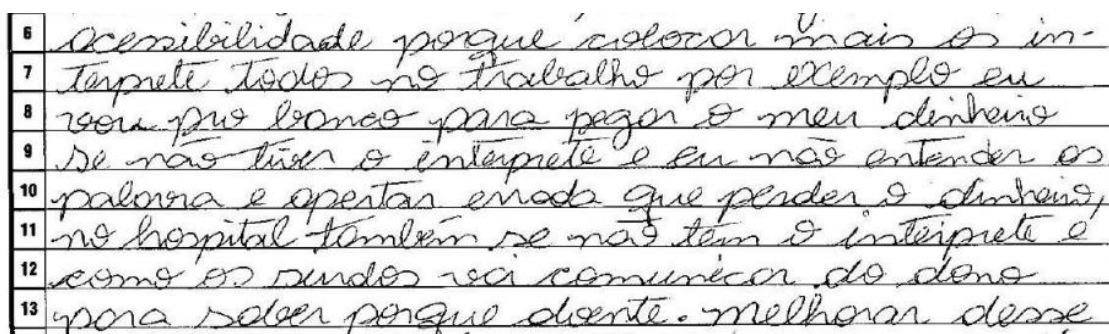 6 acessibilidade porque colocar mais os in-
7 terprete todos no trabalho por exemplo eu
8 vou pro banco para pegar o meu dinheiro
9 se não tiver o interprete e eu não entender os
10 palavra e apertar errada que perder o dinheiro,
11 no hospital também se não tem o interprete e
12 como os surdos vai comunicar do dono
13 para saber porque doente. melhorar desse